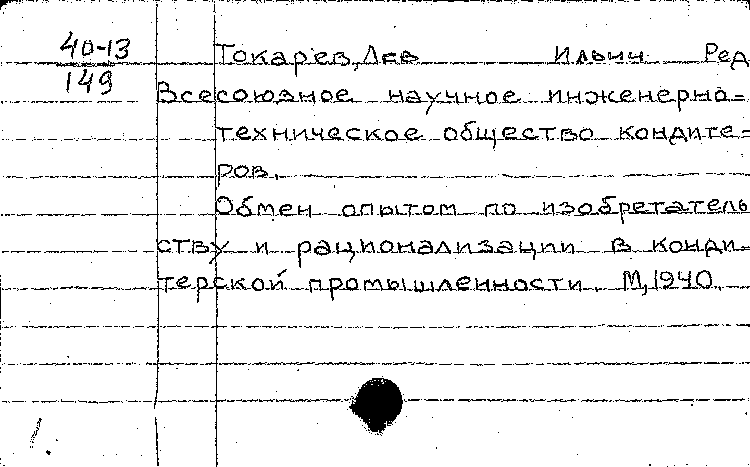 40-13
149
Токарев, Лев Ильич Ред
Всесоюзное научное инженерно=
техническое общество кондите=
ров.
Обмен опытом по изобретатель
ству и рационализации в конди=
терской промышленности. М, 1940.
1.